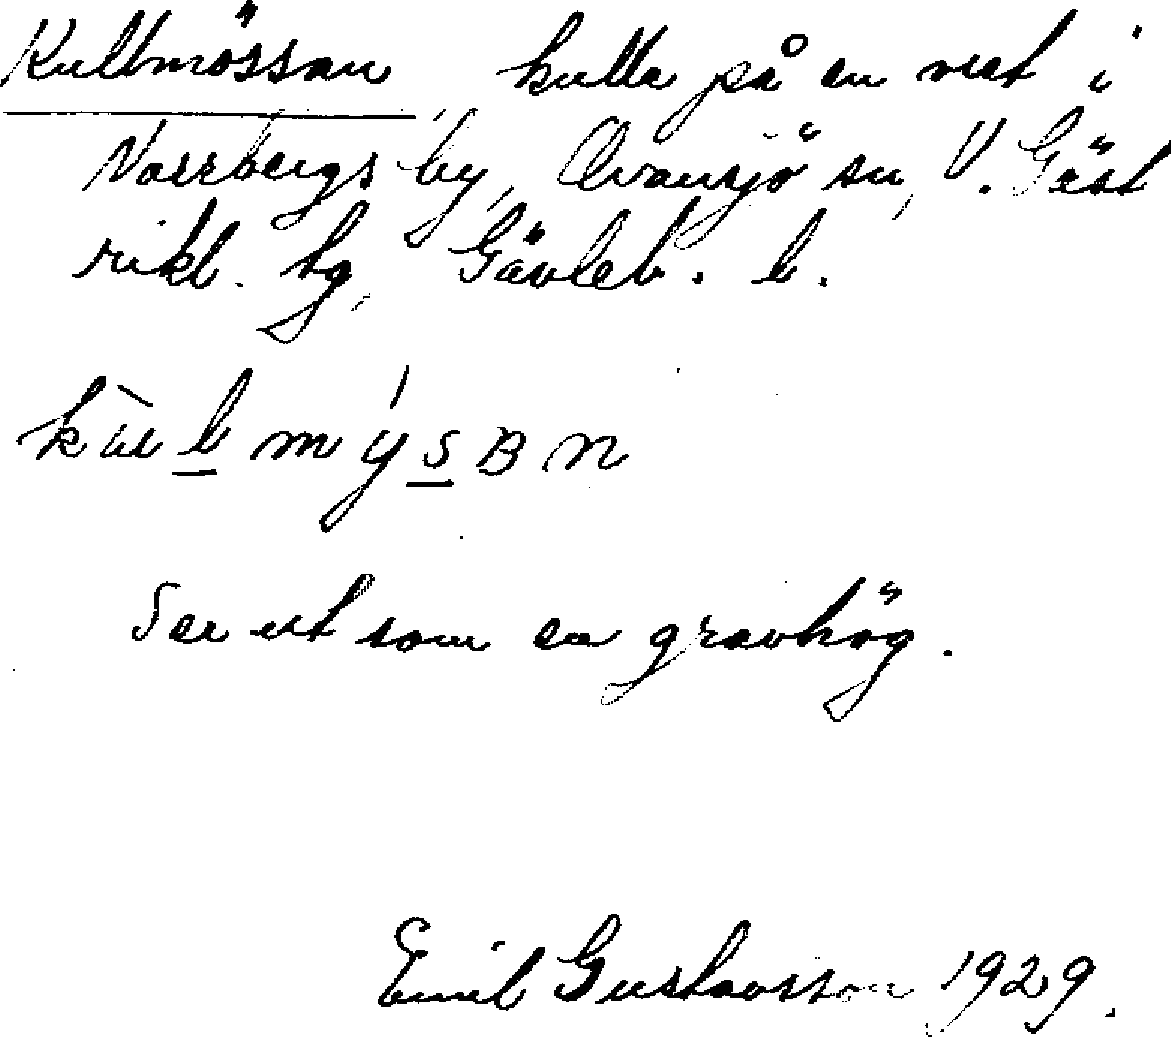 Kullmössan, kulle på en vret i
Norrbergs by, Ovansjö sn, V. Gäst
rikl. tg, Gävleb. l.
Ser ut som en gravhög.
Emil Gustavsson 1929.